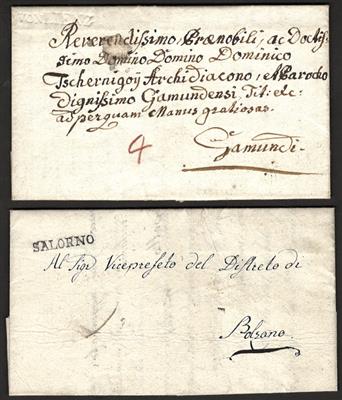 Reverendissimo, Prænobili, ac Doctis-
simo Domino Domino Dominico
Tschernigoÿ Archidiacono, et Parocho
Dignissimo Gamundensi Tit: etc:
ad perquam Manus gratiosas.
4
Gamundi.
SALORNO
Al Sigr Viceprefeto del Distreto di
Bolzano.